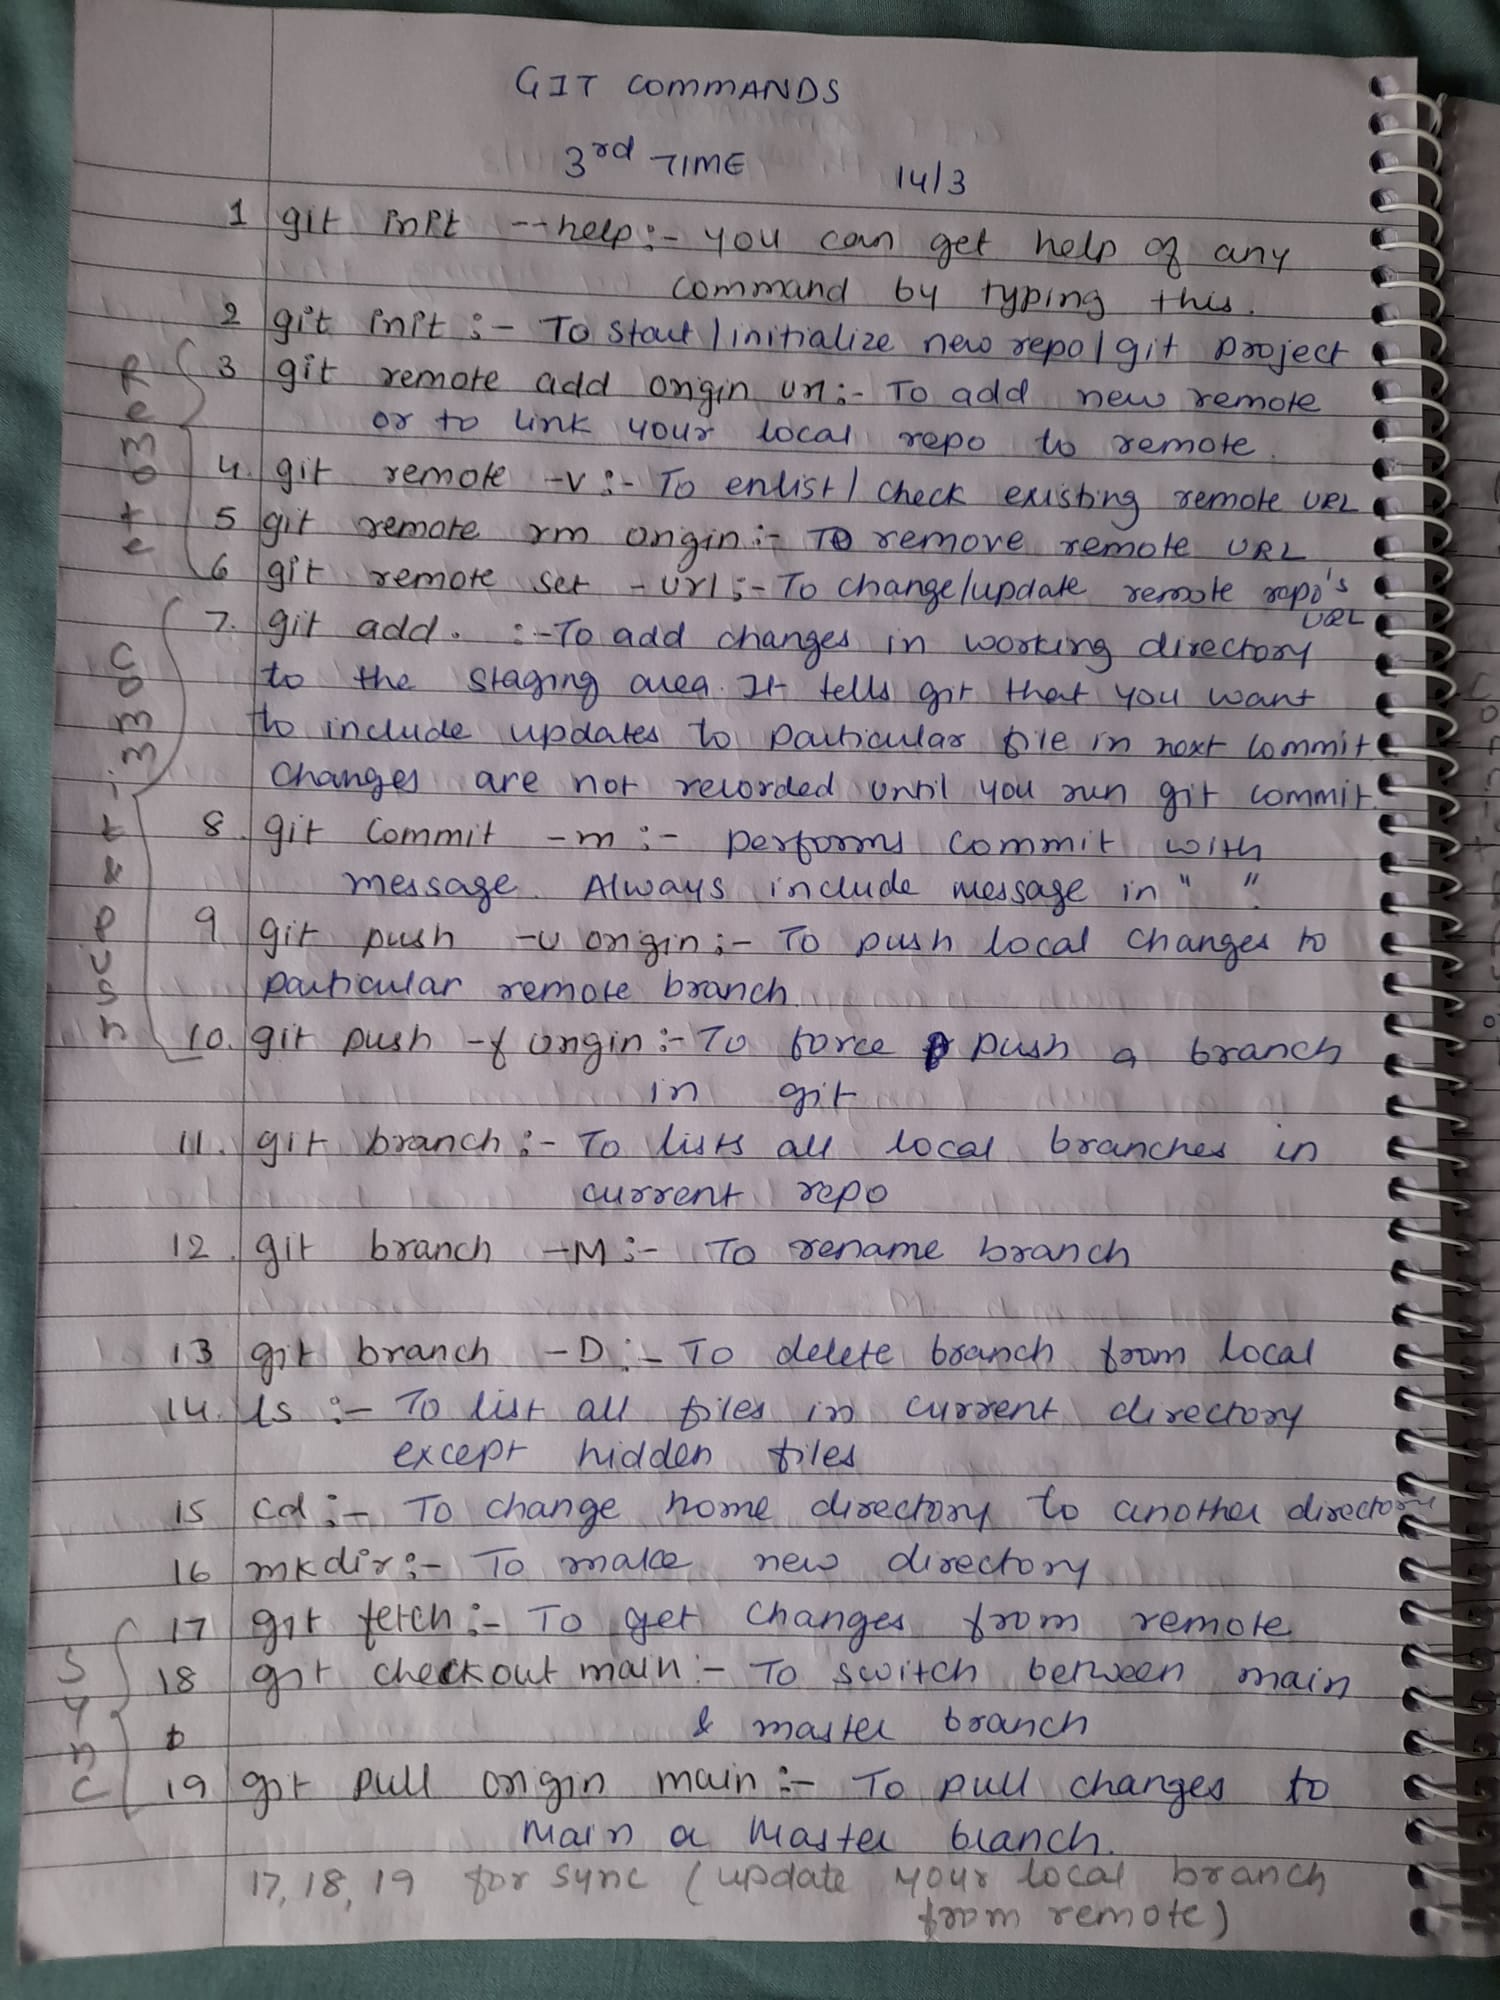 GIT COMMANDS
3rd TIME 14/3
1 git init --help:- you can get help of any
command by typing this.
2 git init :- To start/initialize new repo/git project
3 git remote add origin url:- To add new remote
or to link your local repo to remote.
4. git remote -v :- To enlist/check existing remote URL
5 git remote rm origin:- To remove remote URL
6 git remote set -url :- To change/update remote repo's
URL
7. git add . :- To add changes in working directory
to the staging area. It tells git that you want
to include updates to particular file in next commit
changes are not recorded until you run git commit.
8. git commit -m :- performs commit with
message. Always include message in " ".
9 git push -u origin :- To push local changes to
particular remote branch.
10. git push -f origin :- To force push a branch
in git
11. git branch :- To lists all local branches in
current repo
12. git branch -M :- To rename branch
13 git branch -D :- To delete branch from local
14. ls :- To list all files in current directory
except hidden files
15 cd :- To change home directory to another directory
16 mkdir :- To make new directory
17 git fetch :- To get changes from remote
18 git checkout main :- To switch between main
& master branch
19 git pull origin main :- To pull changes to
main or master branch.
17, 18, 19 for sync (update your local branch
from remote)
Remote
Commit & Push
Sync